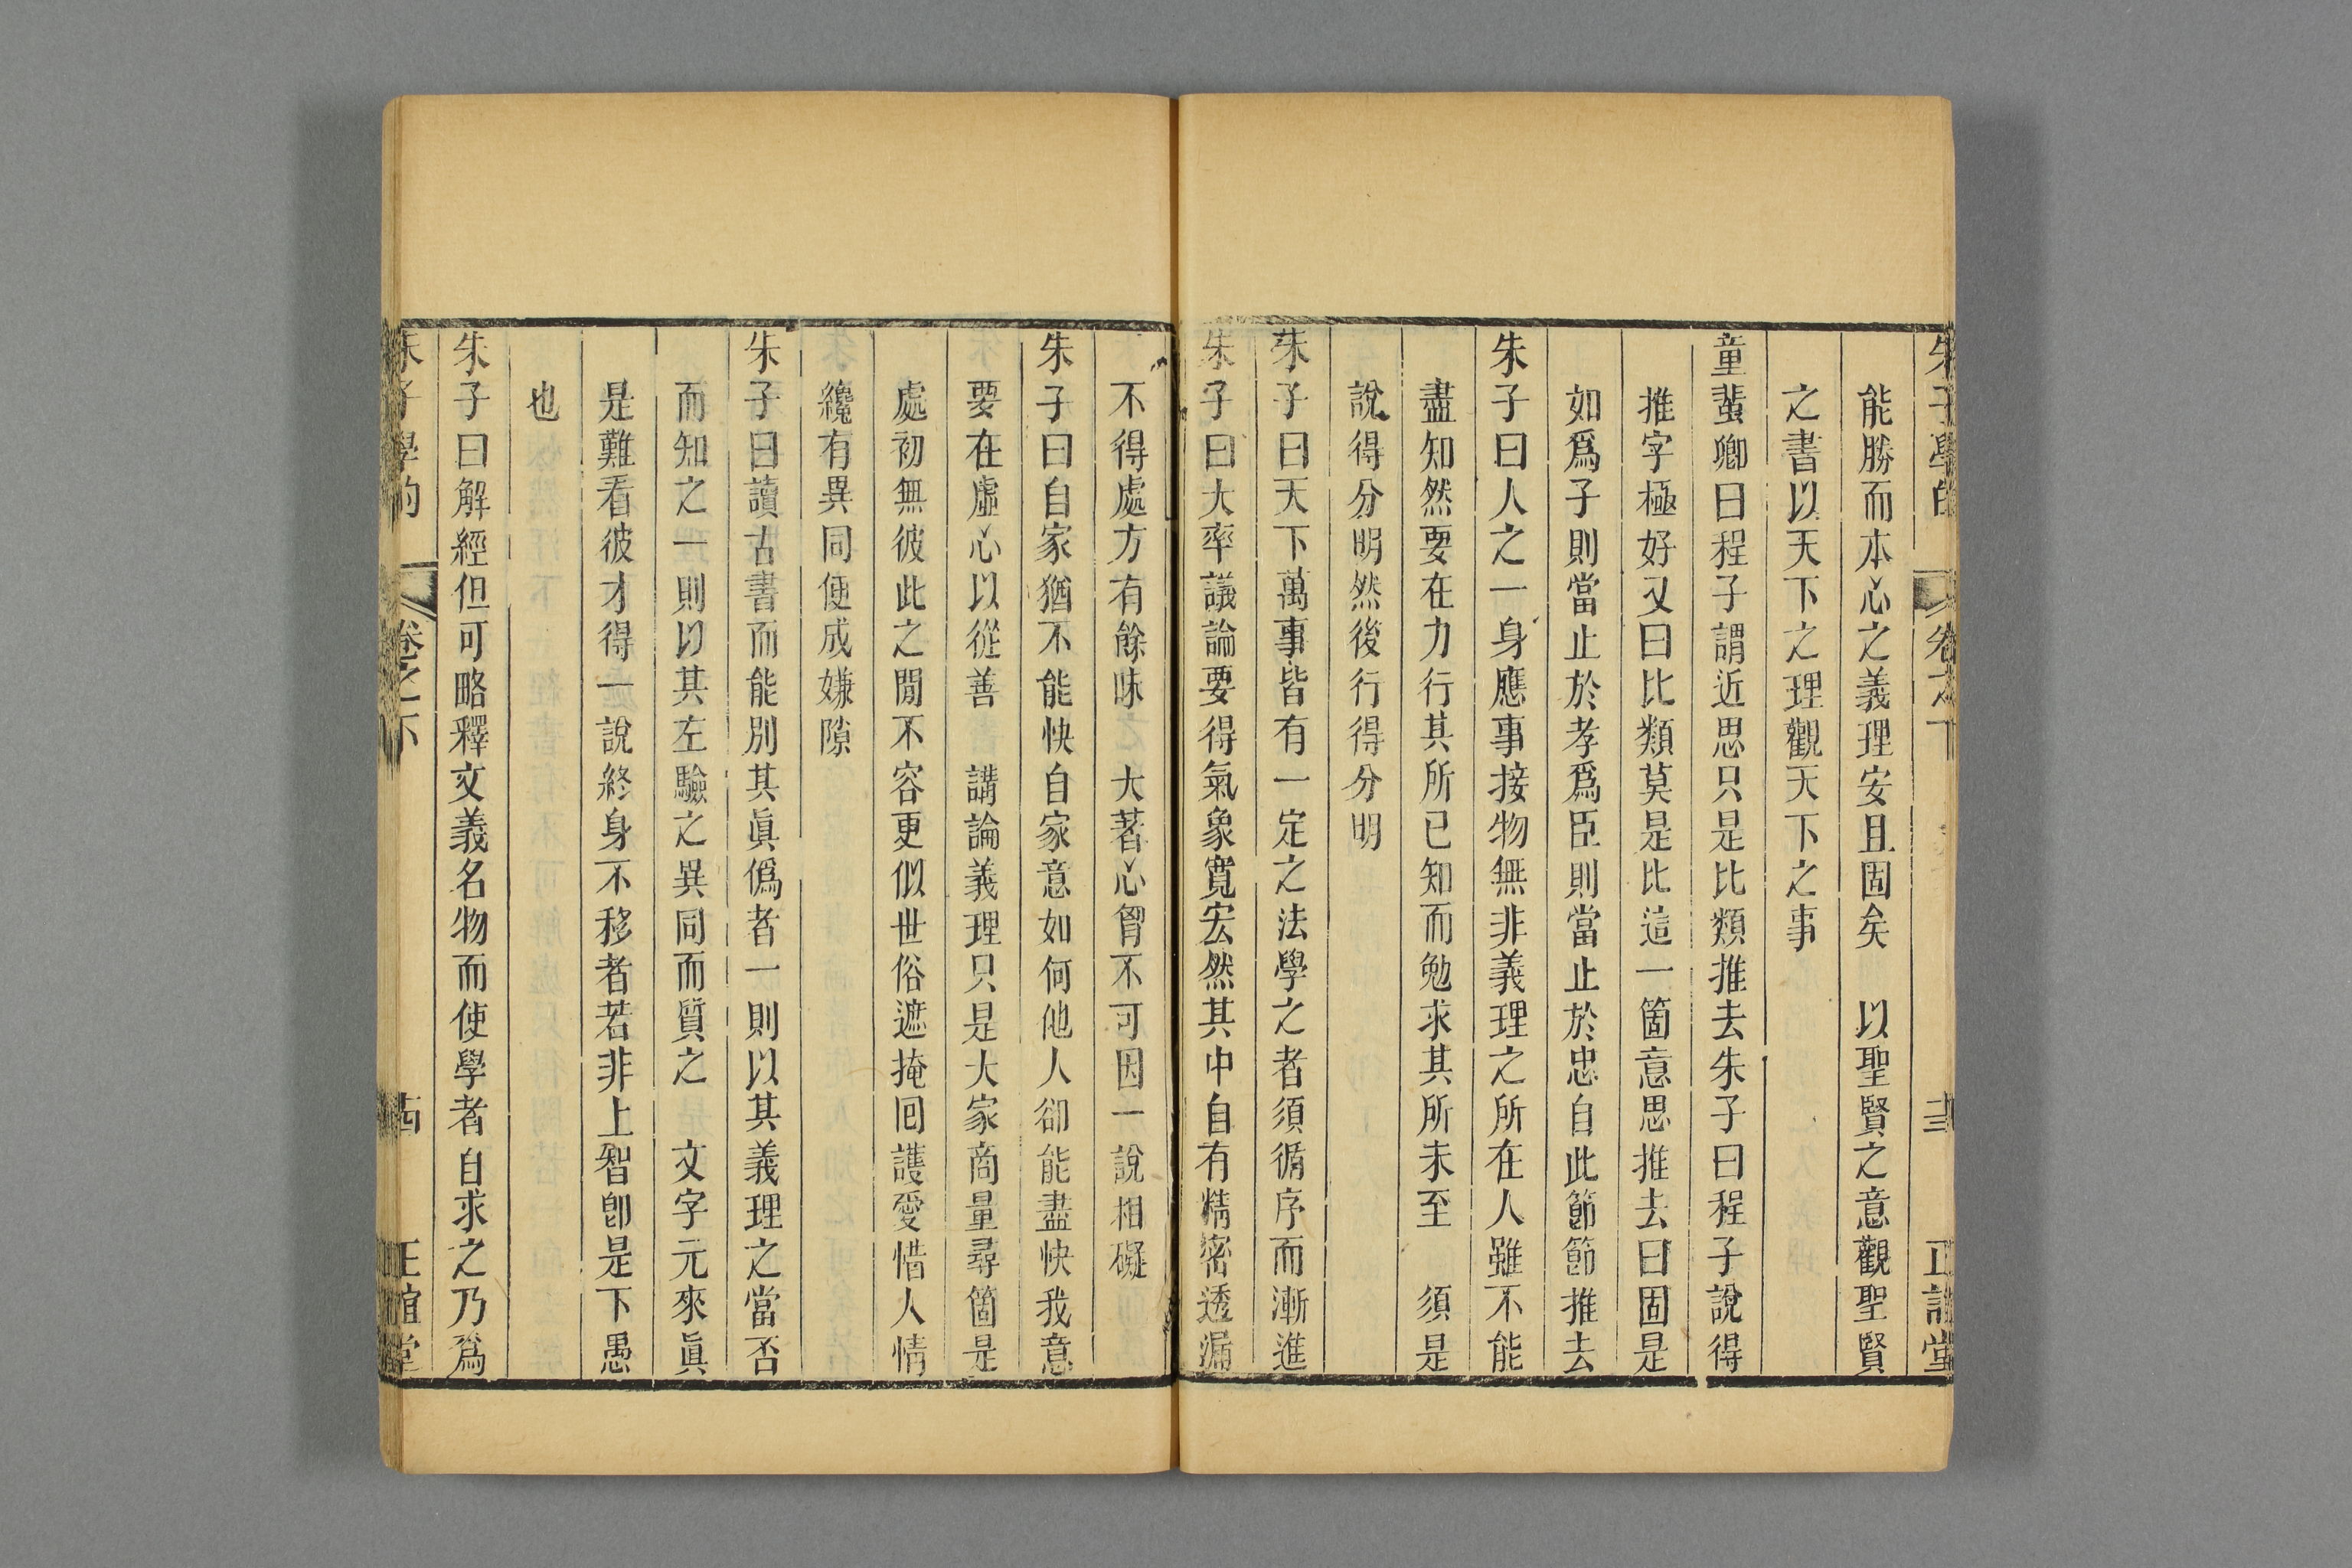 朱子學的 卷之下 十三 正誼堂
能勝而本心之義理安且固矣 以聖賢之意觀聖賢
之書以天下之理觀天下之事
童蜚卿曰程子謂近思只是比類推去朱子曰程子說得
推字極好又曰比類莫是比這一箇意思推去曰固是
如爲子則當止於孝爲臣則當止於忠自此節節推去
朱子曰人之一身應事接物無非義理之所在人雖不能
盡知然要在力行其所已知而勉求其所未至 須是
說得分明然後行得分明
朱子曰天下萬事皆有一定之法學之者須循序而漸進
朱子曰大率議論要得氣象寬宏然其中自有精密透漏
不得處方有餘味 大著心胷不可因一說相礙
朱子曰自家猶不能快自家意如何他人卻能盡快我意
要在虛心以從善 講論義理只是大家商量尋箇是
處初無彼此之閒不容更似世俗遮掩回護愛惜人情
纔有異同便成嫌隙
朱子曰讀古書而能別其眞僞者一則以其義理之當否
而知之一則以其左驗之異同而質之 文字元來眞
是難看彼才得一說終身不移者若非上智卽是下愚
也
朱子曰解經但可略釋文義名物而使學者自求之乃爲
朱子學的 卷之下 十四 正誼堂